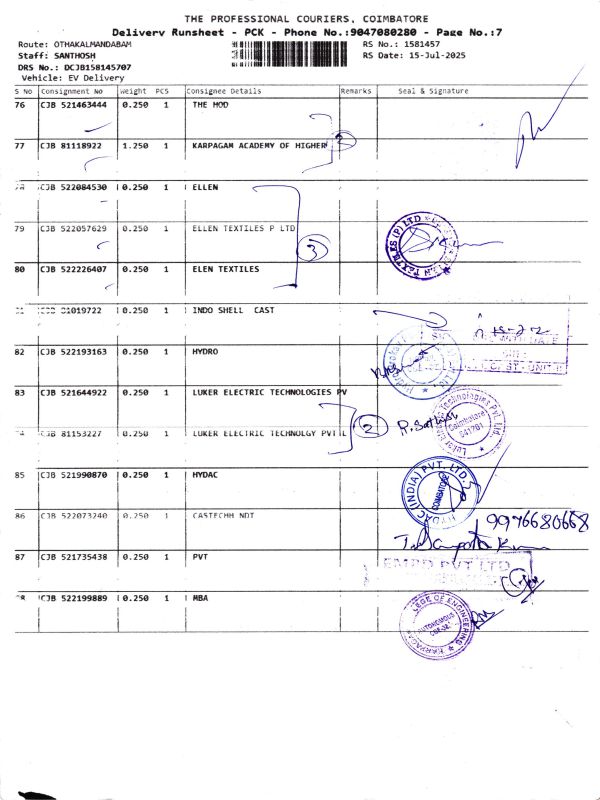 THE PROFESSIONAL COURIERS, COIMBATORE
Delivery Runsheet - PCK - Phone No.:9047080280 - Page No.:7
Route: OTHAKALMANDABAM RS No.: 1581457
Staff: SANTHOSH RS Date: 15-Jul-2025
DRS No.: DCJB158145707
Vehicle: EV Delivery
S No Consignment No Weight PCS Consignee Details Remarks Seal & Signature
76 CJB 521463444 0.250 1 THE MOD
77 CJB 81118922 1.250 1 KARPAGAM ACADEMY OF HIGHER 2
CJB 522084530 0.250 1 ELLEN
79 CJB 522057629 0.250 1 ELLEN TEXTILES P LTD 3
80 CJB 522226407 0.250 1 ELEN TEXTILES
01019722 0.250 1 INDO SHELL CAST
82 CJB 522193163 0.250 1 HYDRO
83 CJB 521644922 0.250 1 LUKER ELECTRIC TECHNOLOGIES PV
CJB 81153227 0.250 1 LUKER ELECTRIC TECHNOLGY PVT L 2 R. Sathya
Coimbatore
641201
85 CJB 521990870 0.250 1 HYDAC
HYDAC (INDIA) PVT. LTD.
COIMBATORE
86 CJB 522073240 0.250 1 CASTECHH NDT 9976680668
87 CJB 521735438 0.250 1 PVT
PVT LTD
CJB 522199889 0.250 1 MBA
COLLEGE OF ENGINEERING
AUTONOMOUS